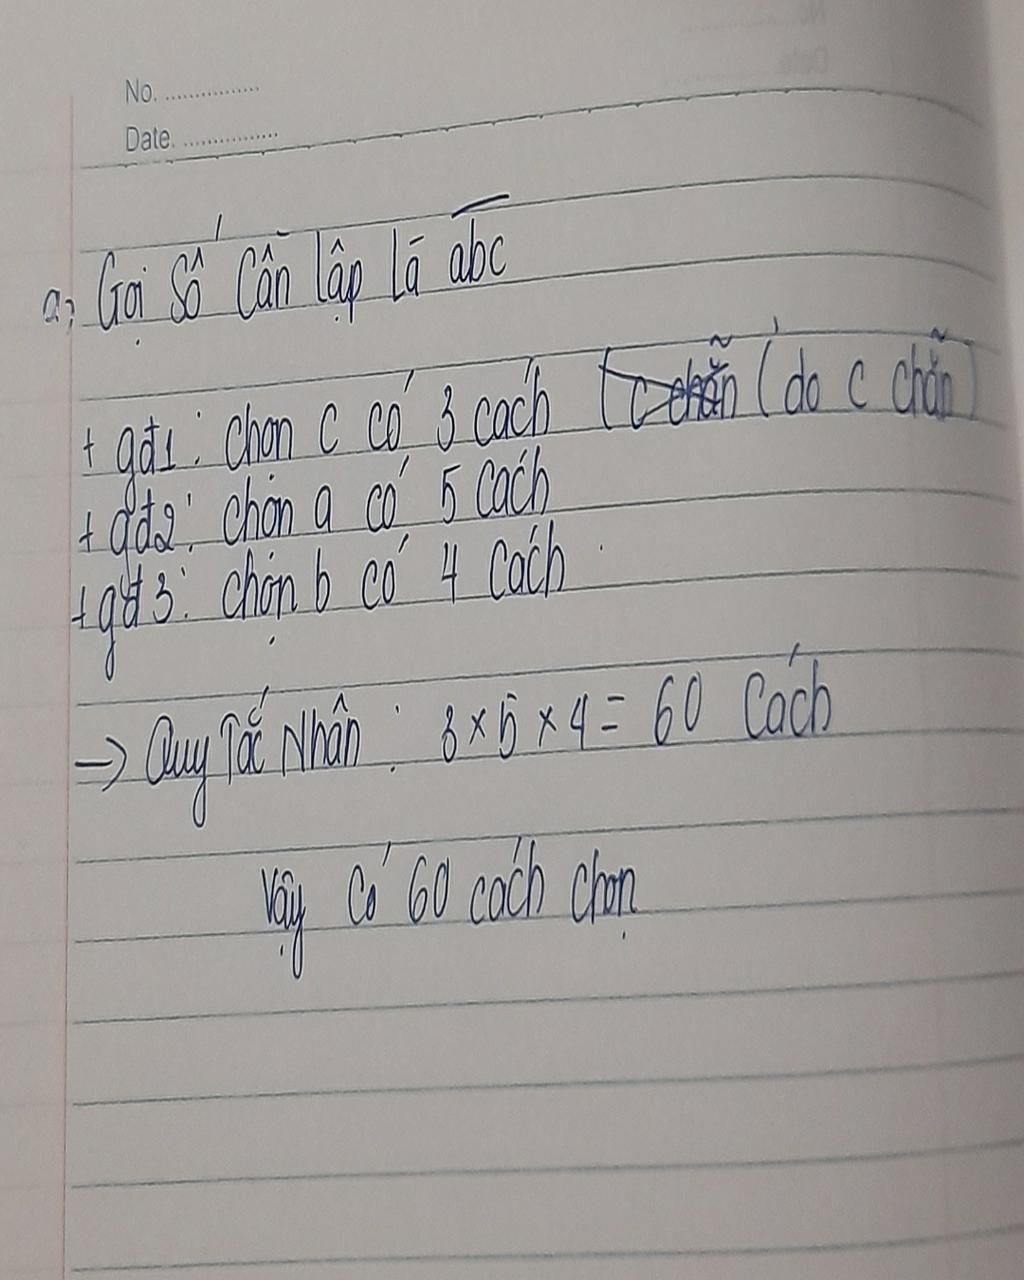 No. ................
Date. ................
a, Gọi số cần lập là abc
+ gđ1: chọn c có 3 cách (c chẵn (do c chẵn)
+ gđ2: chọn a có 5 cách
+ gđ3: chọn b có 4 cách
→ Quy Tắc Nhân: 3 × 5 × 4 = 60 cách
Vậy có 60 cách chọn